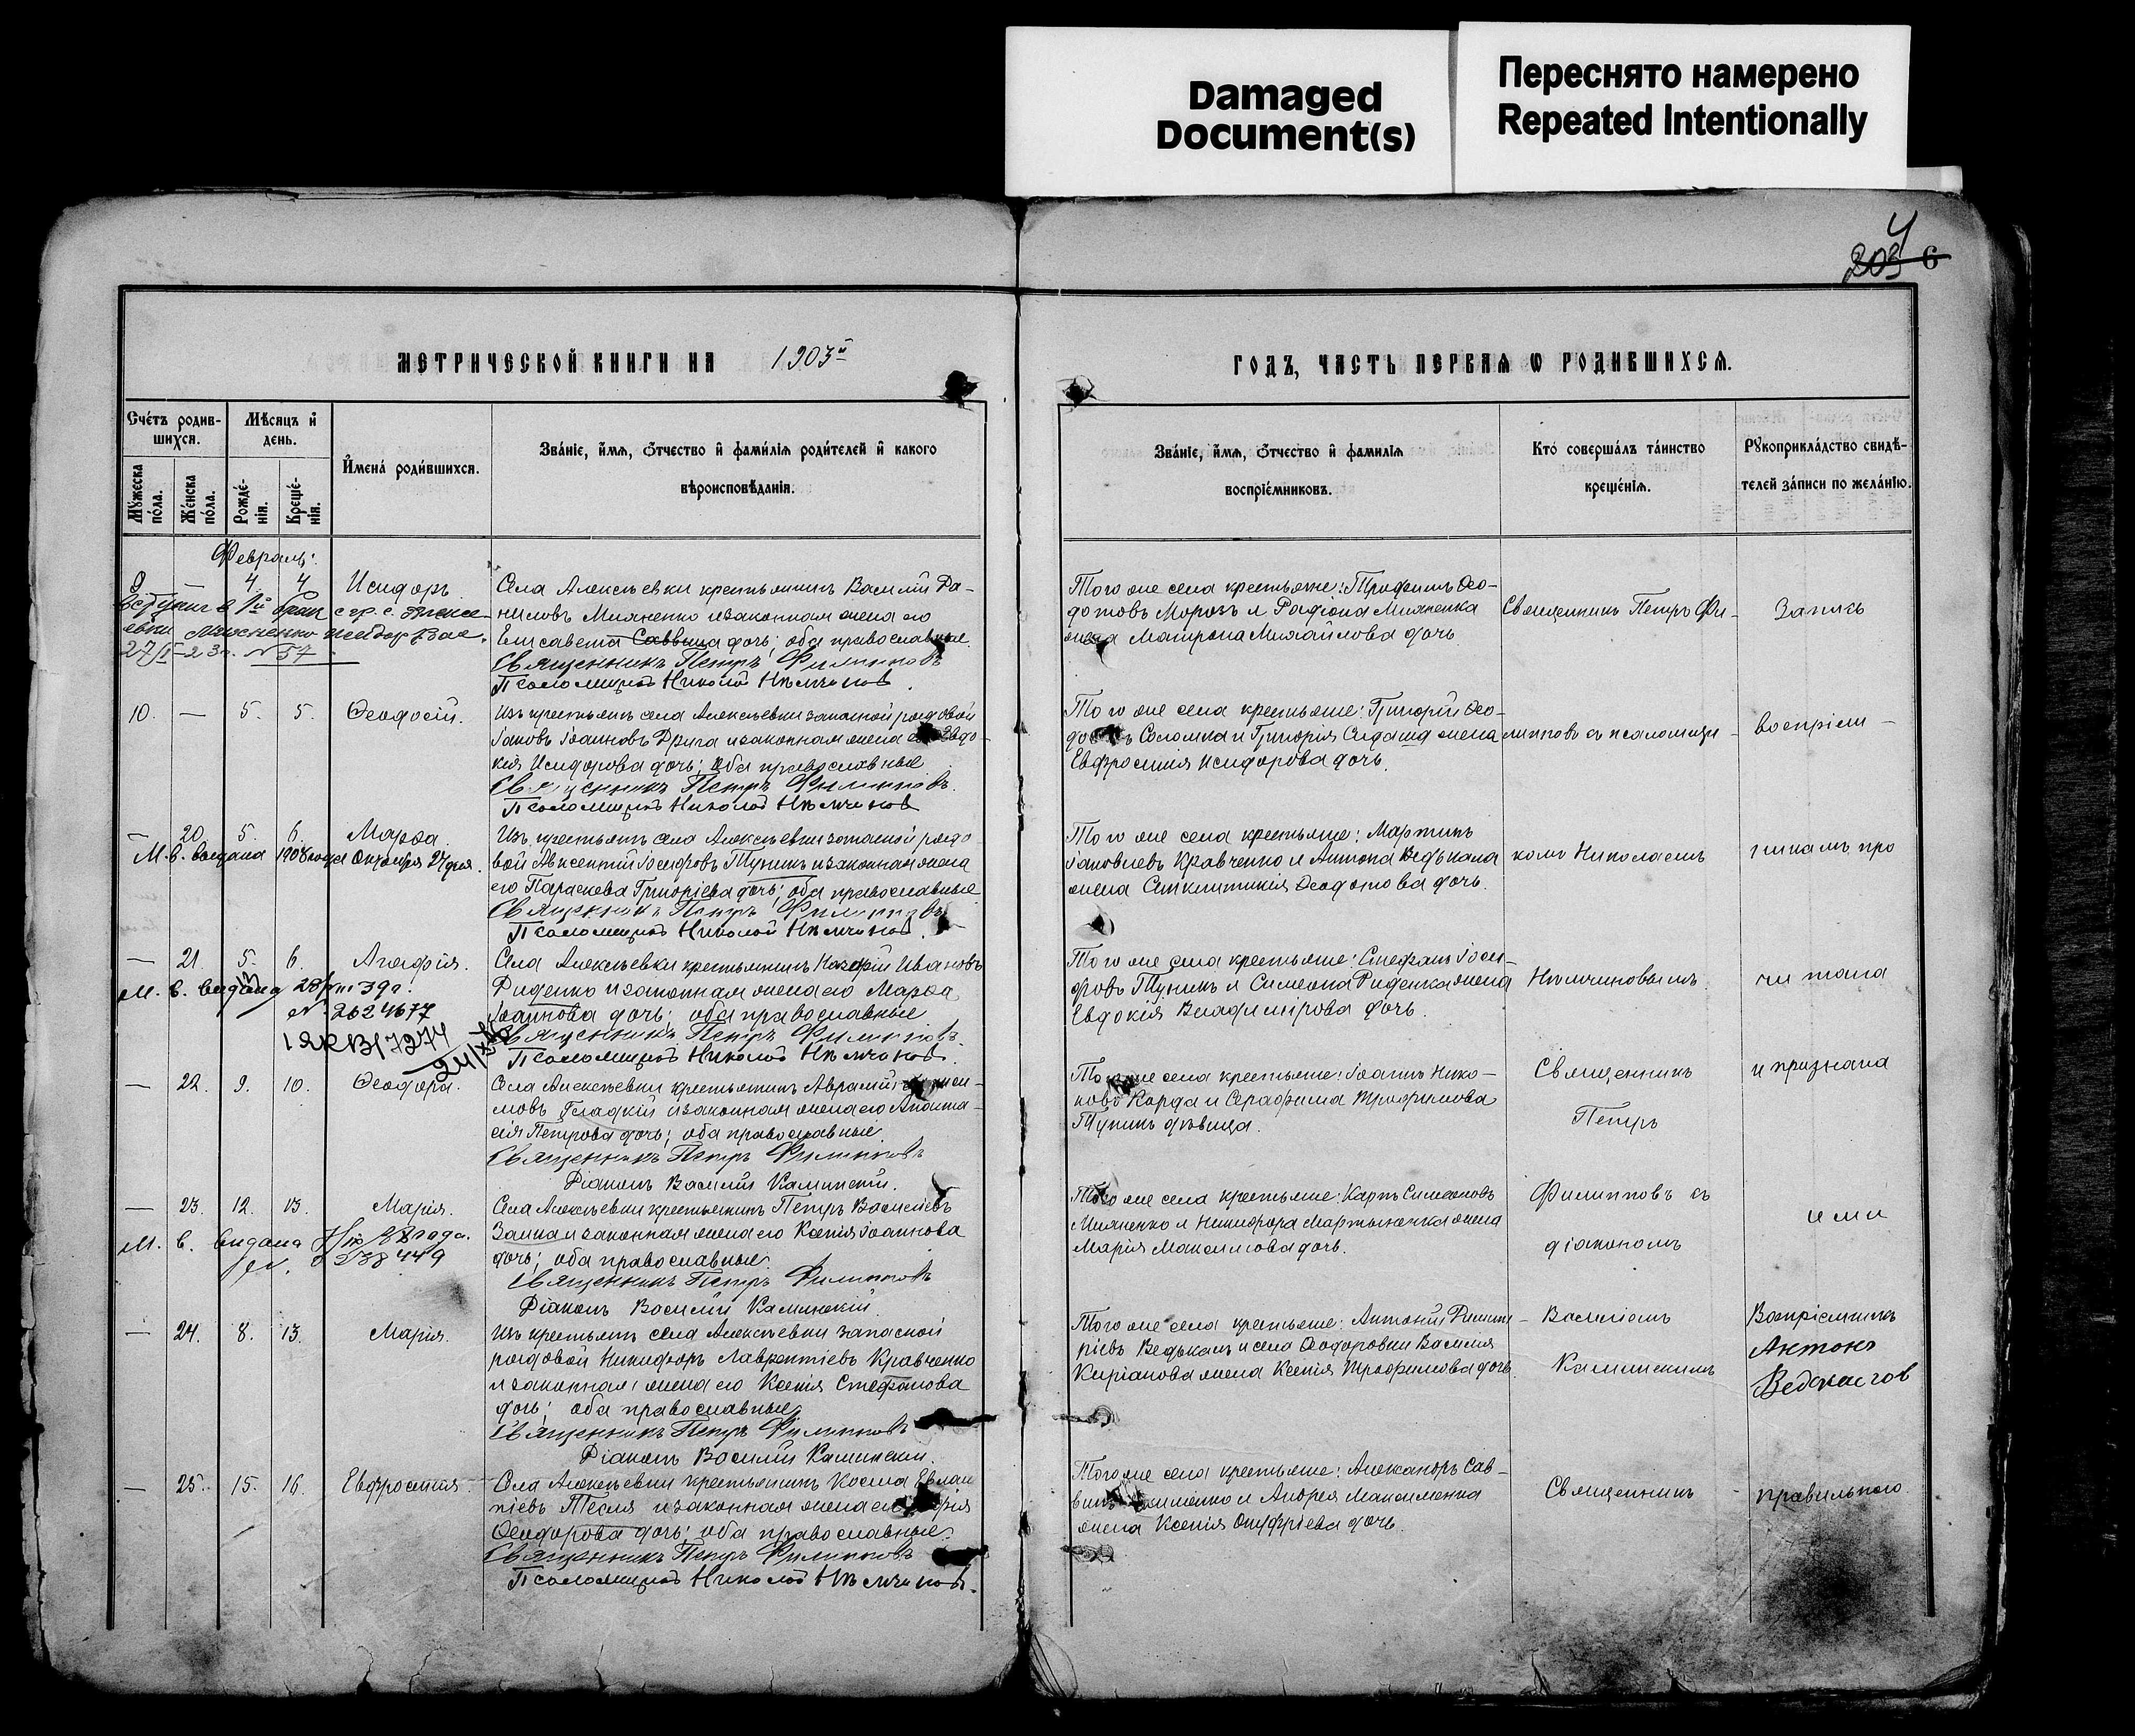 Damaged
Document(s)
Переснято намерено
Repeated Intentionally
4
203 6
МЕТРИЧЕСКОЙ КНИГИ НА 1903й
ГОДЪ, ЧАСТЬ ПЕРВАЯ Ѡ РОДИВШИХСЯ.
Счетъ родив-
шихся.
Мѣсяцъ и
день.
Имена родившихся.
Званіе, имя, отчество и фамилія родителей и какого
вѣроисповѣданія.
Мужеска
пола.
Женска
пола.
Рожде-
нія.
Креще-
нія.
Званіе, имя, отчество и фамилія
воспріемниковъ.
Кто совершалъ таинство
крещенія.
Рукоприкладство свидѣ-
телей записи по желанію.
Февраль:
9 — 4. 4 Исидоръ
Села Алексѣевки крестьянинъ Василій Да-
ниловъ и законная жена его
Елисавета Саввина дочь; оба православные.
Священникъ Петръ Филипповъ
Псаломщикъ Николай Нѣмчиновъ.
27/I-23г. №57
Того же села крестьяне: Трофимъ Ѳео-
дотовъ Морозъ и Родіона
жена Матрона Михайлова дочь
Священникъ Петръ Фи-
Запись
10. — 5. 5. Ѳеодосій.
Изъ крестьянъ села Алексѣевки запасной рядовой
Іаковъ Іоанновъ и законная жена его Евдо-
кія Исидорова дочь; оба православные
Священникъ Петръ Филипповъ.
Псаломщикъ Николай Нѣмчиновъ
Того же села крестьяне: Григорій Ѳео-
Соломка и Григорія жена
Евфросинія Исидорова дочь.
липповъ съ псаломщи-
воспріем-
— 20. 5. 6. Марѳа.
М. в. выдана 1908 года Октября 27 дня.
Изъ крестьянъ села Алексѣевки запасной рядо
вой Авксентій Іосифовъ Тупикъ и законная жена
его Параскева Григоріева дочь; оба православные
Священникъ Петръ Филипповъ
Псаломщикъ Николай Нѣмчиновъ.
Того же села крестьяне: Мартинъ
Іаковлевъ Кравченко и Антона
жена Синклитикія Ѳеодотова дочь.
комъ Николаемъ
никамъ про
— 21. 5. 6. Агафія.
М. в. видана 39г.
№ 2624677
Села Алексѣевки крестьянинъ Ивановъ
Риденко и законная жена его Марѳа
Іоаннова дочь; оба православные
Священникъ Петръ Филипповъ.
Псаломщикъ Николай Нѣмчиновъ.
Того же села крестьяне: Стефанъ Іоси-
фовъ Тупикъ и Симеона Риденка жена
Евдокія Владимірова дочь.
Нѣмчиновымъ.
читана
— 22. 9. 10. Ѳеодора.
Села Алексѣевки крестьянинъ Авраамій
Гладкій и законная жена его Анаста-
сія Петрова дочь; оба православные.
Священникъ Петръ Филипповъ
Діаконъ Василій Калинскій.
Того же села крестьяне: Іоаннъ Нико-
новъ Корда и Серафима Трофимова
Тупикъ дѣвица.
Священникъ
Петръ
и признана
— 23. 12. 13. Марія.
М. в. видана
Села Алексѣевки крестьянинъ Петръ Василіевъ
Заика и законная жена его Ксенія Іоаннова
дочь; оба православные.
Священникъ Петръ Филипповъ
Діаконъ Василій Калинскій.
Того же села крестьяне: Карпъ Симеоновъ
и Никифора Мартыненка жена
Марія Максимова дочь.
Филипповъ съ
діакономъ
ими
— 24. 8. 13. Марія.
Изъ крестьянъ села Алексѣевки запасной
рядовой Никифоръ Лаврентіевъ Кравченко
и законная жена его Ксенія Стефанова
дочь; оба православные.
Священникъ Петръ Филипповъ
Діаконъ Василій Калинскій.
Того же села крестьяне: Антоній
и села Ѳеодоровки Василія
Кипріанова жена Ксенія Трофимова дочь.
Василіемъ
Калинскимъ
Воспріемникъ
Антонъ
— 25. 15. 16. Евфросинія.
Села Алексѣевки крестьянинъ Косма Евлам
піевъ Тесля и законная жена его
Ѳеодорова дочь; оба православные.
Священникъ Петръ Филипповъ
Псаломщикъ Николай Нѣмчиновъ.
Того же села крестьяне: Александръ Сав-
и Андрея Максименка
жена Ксенія Онуфріева дочь.
Священникъ
правильного